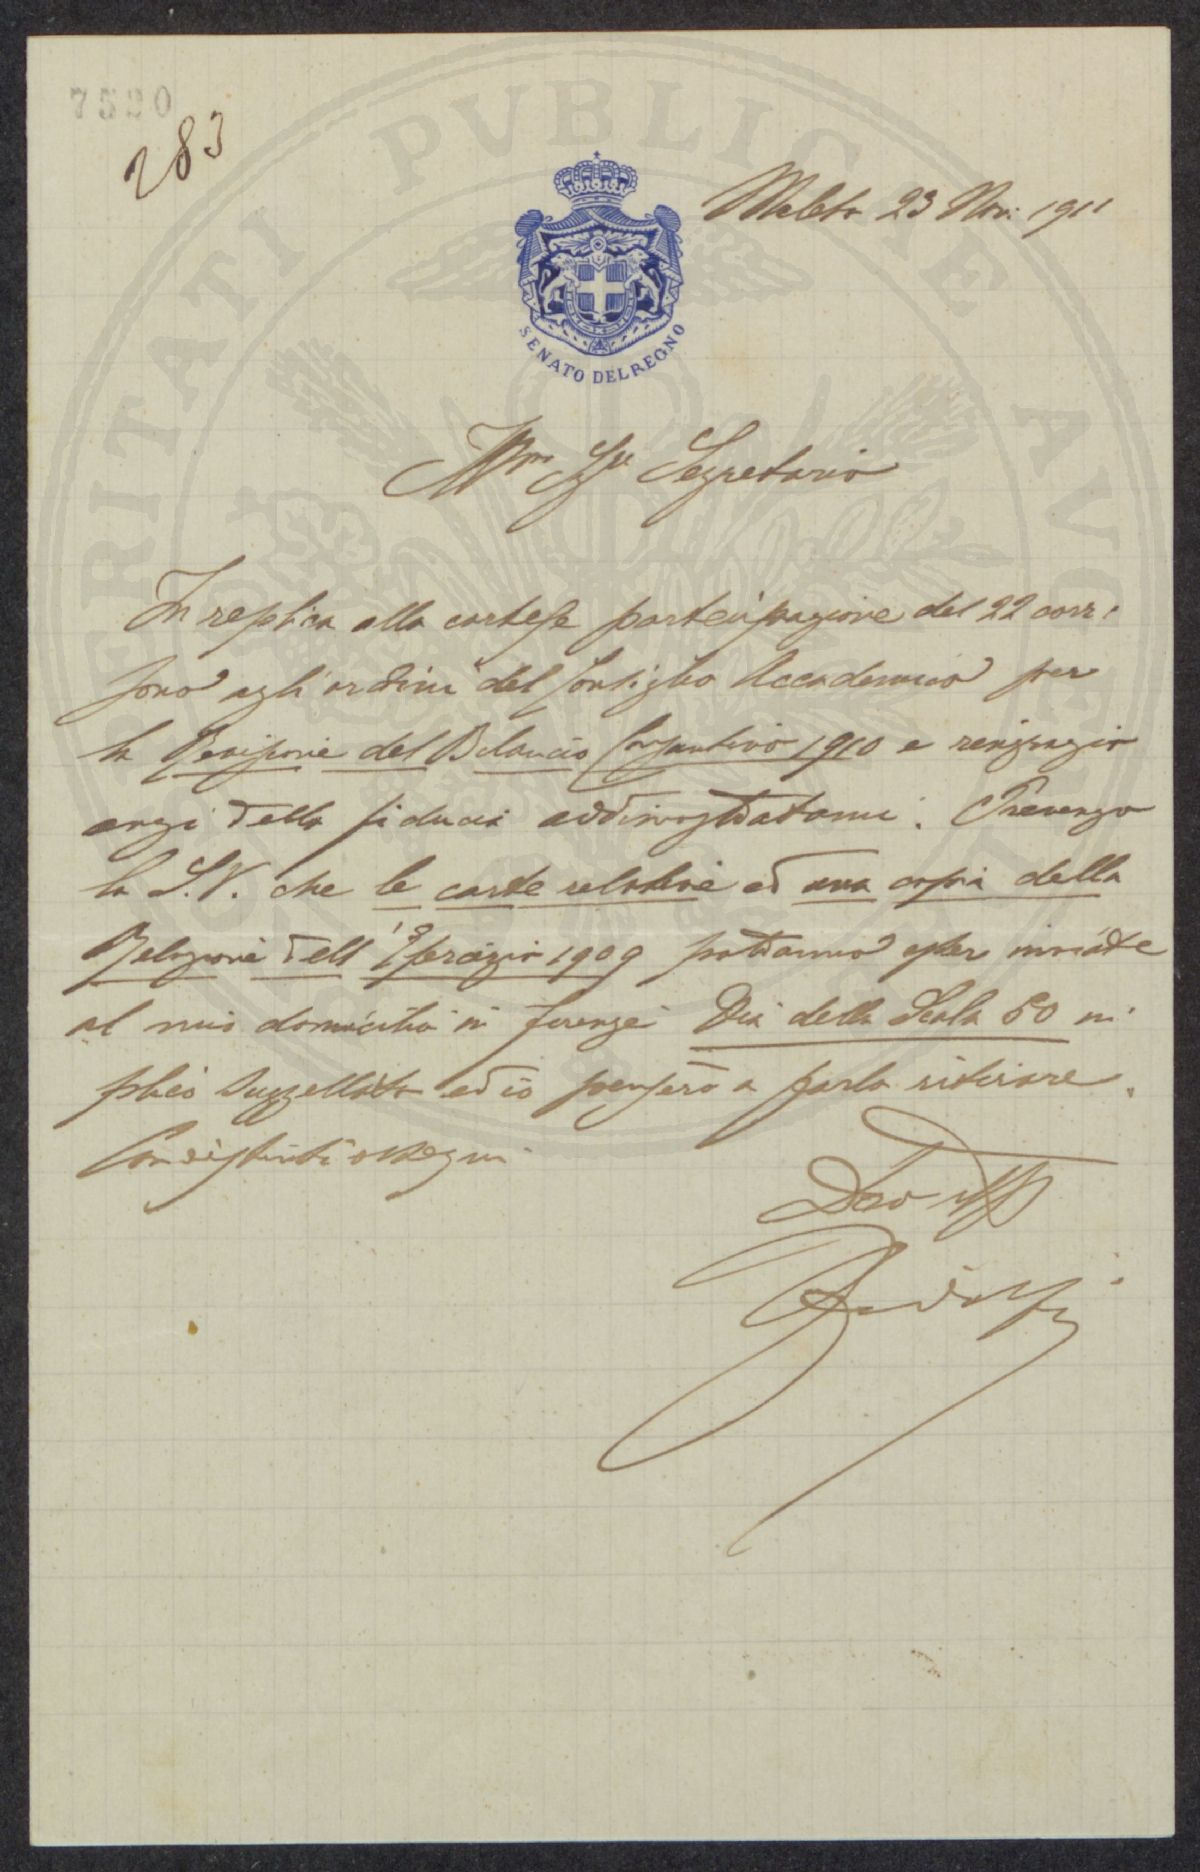 7520
283
PROSPERITATI PVBLICAE AVGENDAE
Meleto 23 Nov: 1911
SENATO DEL REGNO
Illmo Sigr Segretario
In replica alla cortese partecipazione del 22 corr:
sono agli ordini del Consiglio Accademico per
la Revisione del Bilancio Consuntivo 1910 e ringrazio
anzi della fiducia addimostratami. Prevengo
la S.V. che le carte relative ed una copia della
Relazione dell'Esercizio 1909 potranno esser inviate
al mio domicilio in Firenze Via della Scala 50 in
plico suggellato ed io penserò a farlo ritirare.
Con distinti ossequi
Devmo
Ridolfi